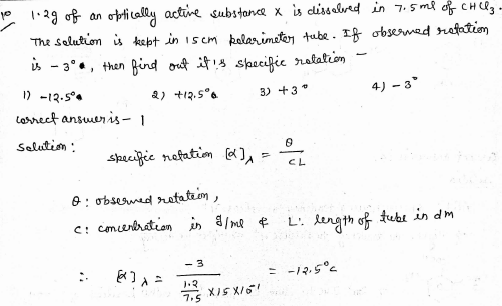 10 1.2g of an optically active substance x is dissolved in 7.5ml of CHCl₃.
The solution is kept in 15cm polarimeter tube. If observed rotation
is -3°, then find out it's specific rotation -
1) -12.5° 2) +12.5° 3) +3° 4) -3°
correct answer is - 1
Solution :
specific rotation [α]λ = θ / CL
θ : observed rotation,
C : concentration in g/ml & L : length of tube in dm
∴ [α]λ = -3 / (1.2/7.5 × 15 × 10⁻¹) = -12.5°c